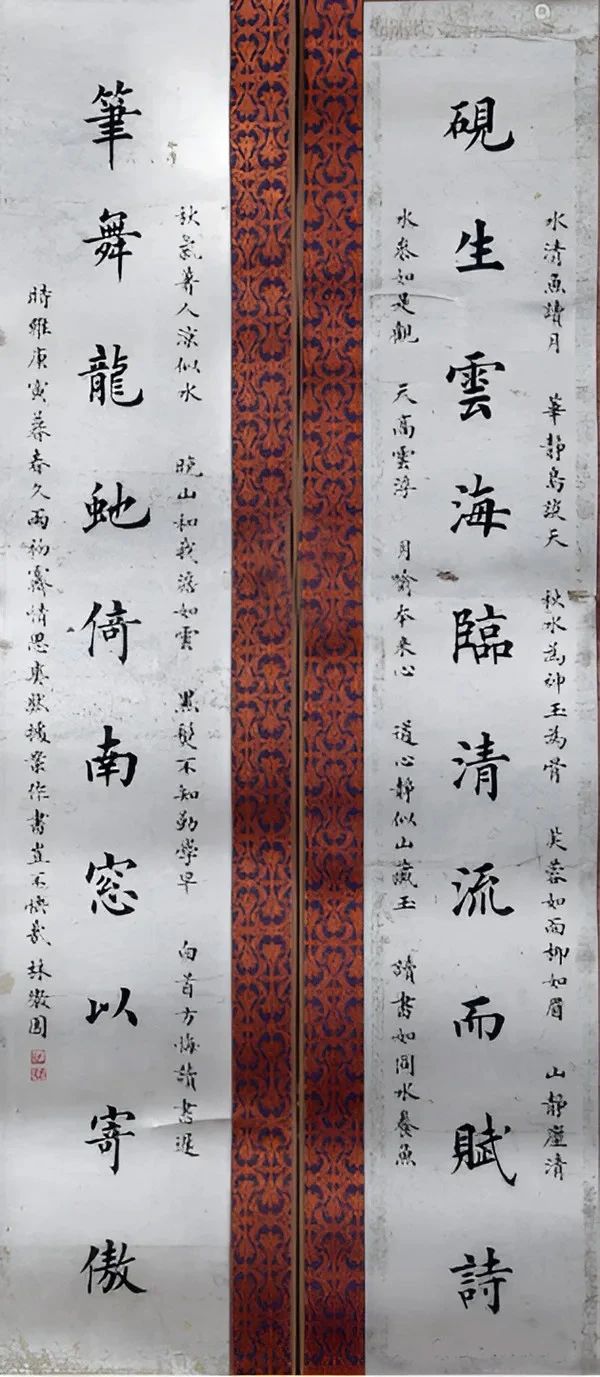 水清魚讀月 華靜鳥談天 秋水為神玉為骨 芙蓉如面柳如眉 山靜塵清
硯生雲海臨清流而賦詩
水參如是觀 天高雲浮 月喻本來心 道心靜似山藏玉 讀書如同水養魚
秋氣著人涼似水 晚山和我澹如雲 黑髮不知勤學早 白首方悔讀書遲
筆舞龍虵倚南窓以寄傲
時維庚寅暮春久雨初霽情思爽然案作書豈不哉 林徽因